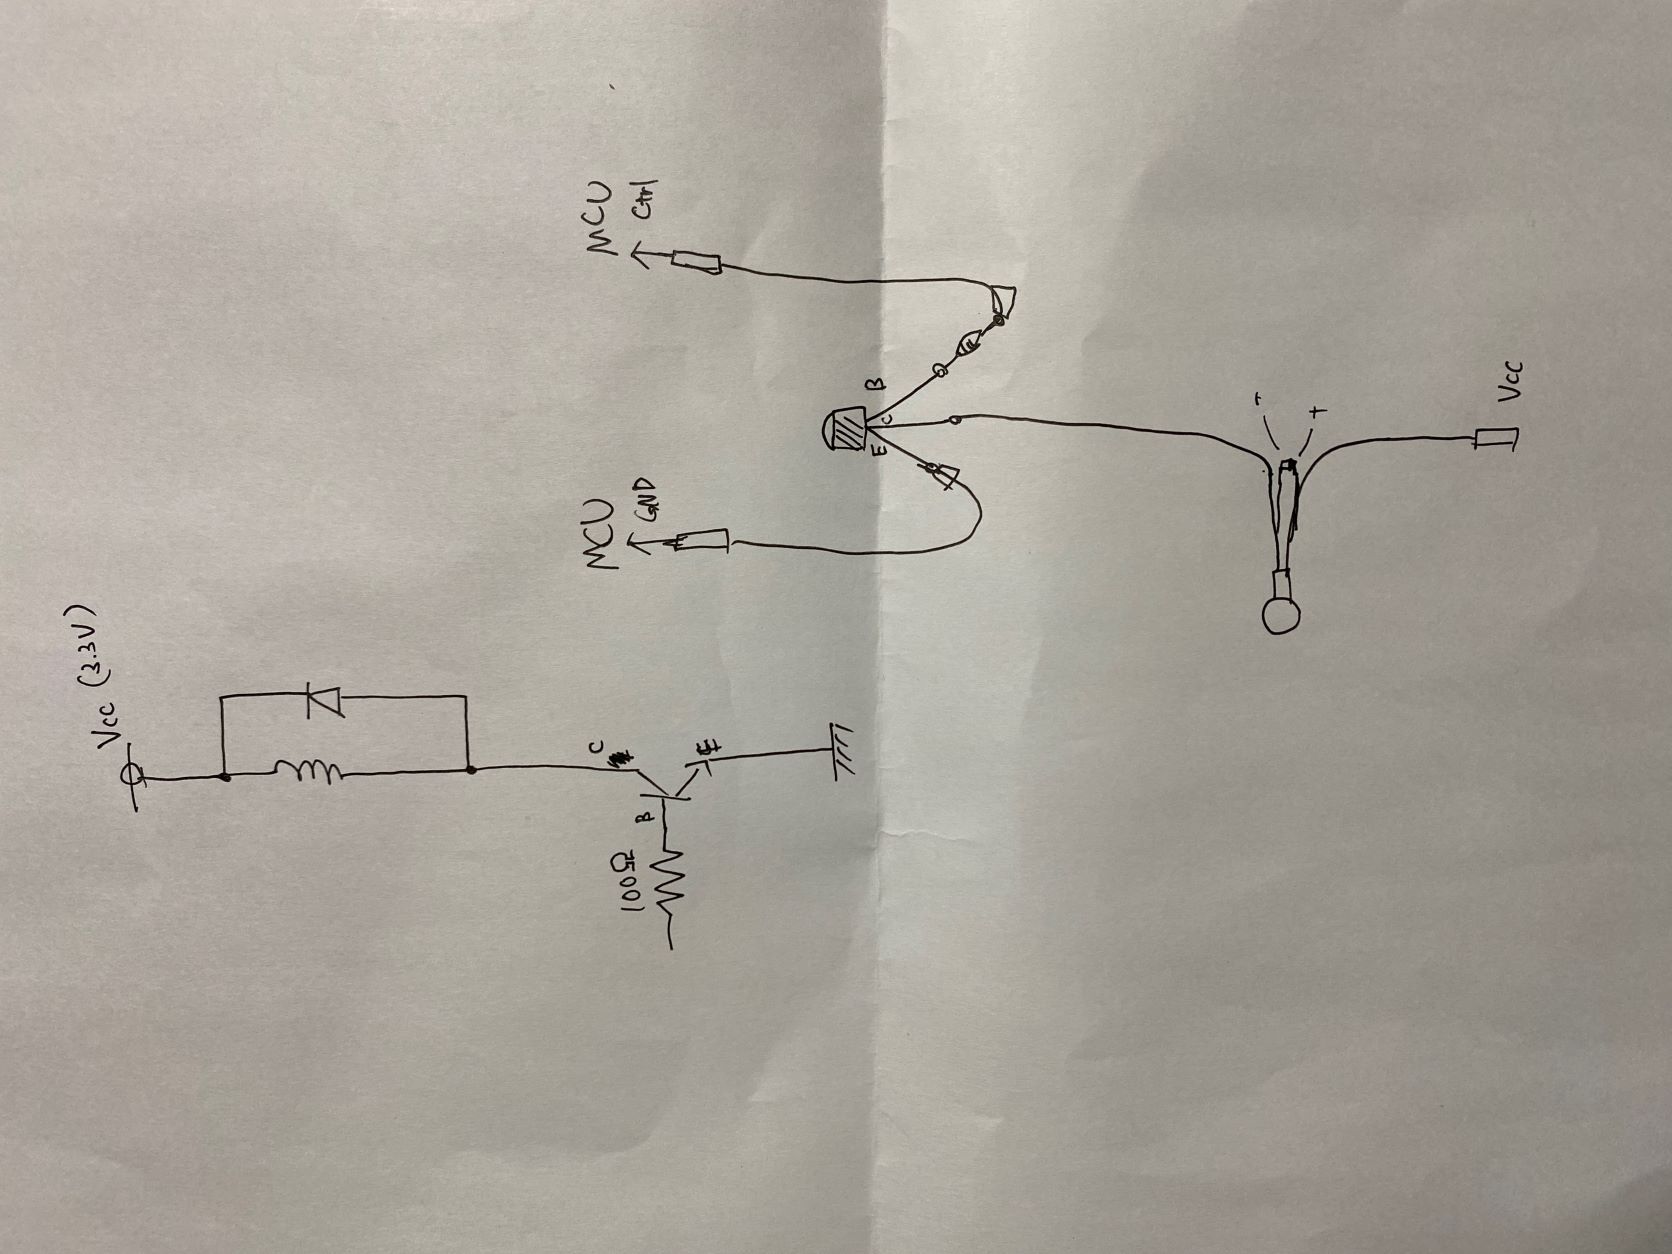 Vcc (3.3V)
C
100Ω
B
E
MCU
GND
MCU
Ctrl
E
C
B
-
+
Vcc